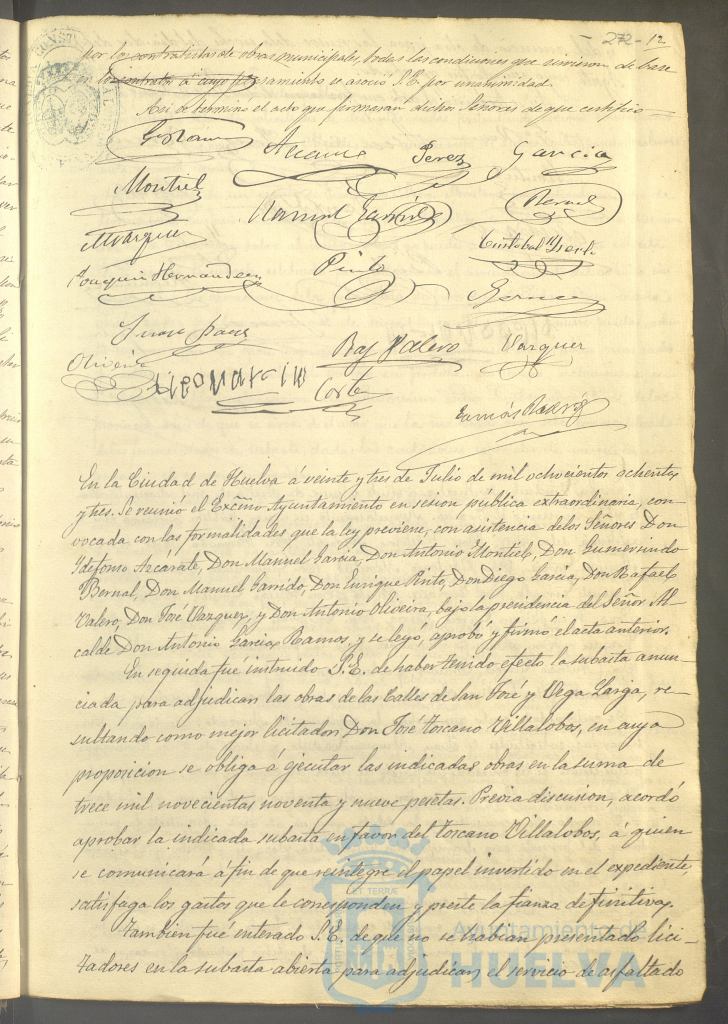 272-12
por los contratistas de obras municipales, todas las condiciones que sirvieron de base
á su se asoció S.E. por unanimidad.
Así se terminó el acto que firmaran dichos Señores de que certifico
Perez García
Montiel Manuel Garrido Bernal
M Vazquez Cristobal
Joaquin Hernandez Pinto
Juan Saez Raf Valero Vazquez
Oliveira Corte
Tomás Rodríg
En la Ciudad de Huelva á veinte y tres de Julio de mil ochocientos ochenta
y tres. Se reunió el Excmo Ayuntamiento en sesion pública extraordinaria, con-
vocada con las formalidades que la ley previene, con asistencia de los Señores Don
Ildefonso Azcarate, Don Manuel Garcia, Don Antonio Montiel, Don Gumersindo
Bernal, Don Manuel Garrido, Don Enrique Pinto, Don Diego Garcia, Don Rafael
Valero, Don José Vazquez, y Don Antonio Oliveira, bajo la presidencia del Señor Al-
calde Don Antonio Garcia Ramos, y se leyó, aprobó y firmó el acta anterior.
En seguida fué instruido S.E. de haber tenido efecto la subasta anun-
ciada para adjudicar las obras de las Calles de San José y Vega Larga, re-
sultando como mejor licitador Don José Toscano Villalobos, en cuya
proposicion se obliga á ejecutar las indicadas obras en la suma de
trece mil novecientas noventa y nueve pesetas. Previa discusion, acordó
aprobar la indicada subasta en favor del Toscano Villalobos, á quien
se comunicará á fin de que reintegre el papel invertido en el expediente,
satisfaga los gastos que le corresponden y preste la fianza definitiva.
Tambien fué enterado S.E. de que no se habian presentado lici-
tadores en la subasta abierta para adjudicar el servicio de asfaltado
Ayuntamiento de
HUELVA